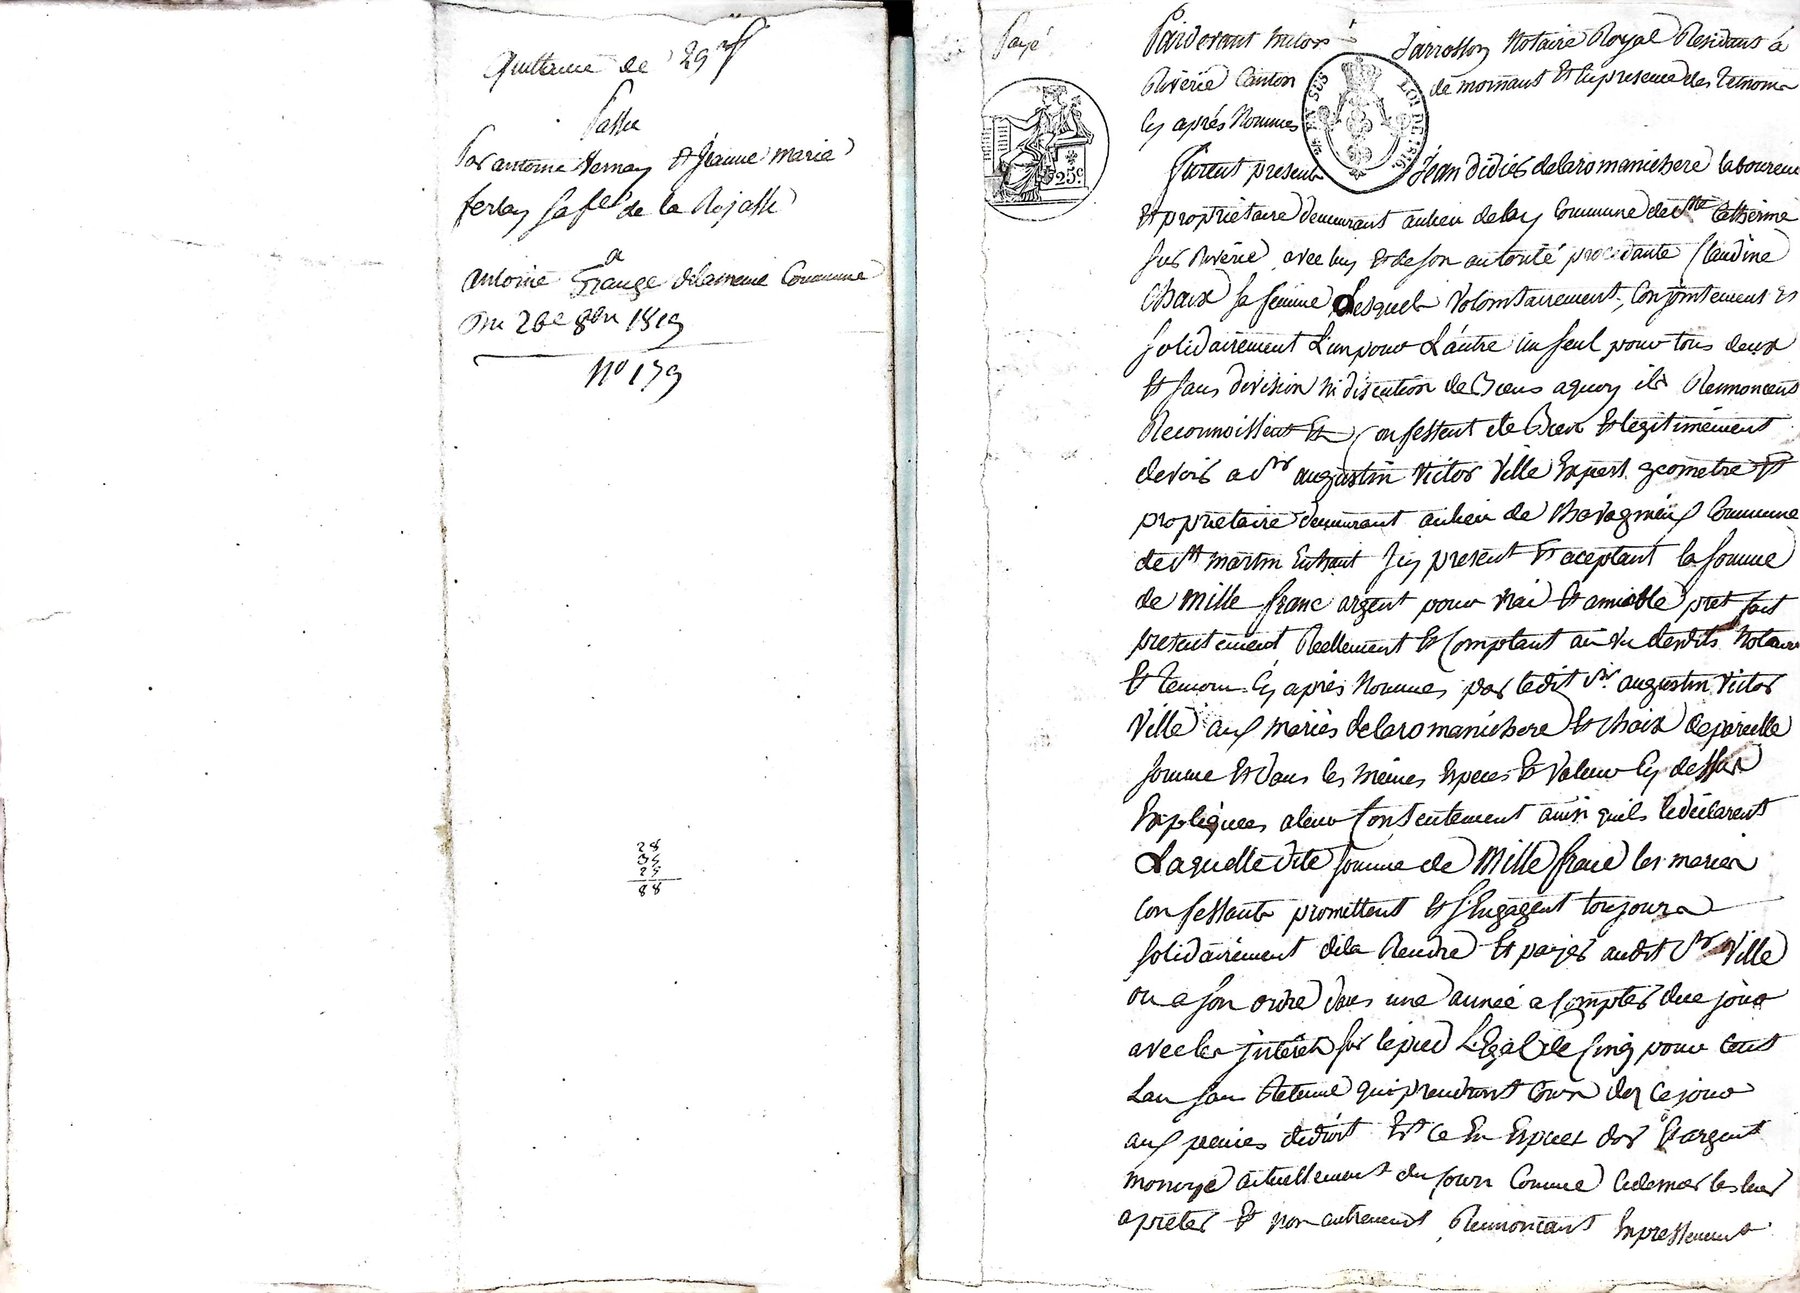 Quittance de 29 ff
Passée
Par antoine Vernay et jeanne marie
ferlay sa fe de la Rajasse
a
antoine Grange de la meme Commune
Du 26e 8bre 1819
No 179
28
35
25
88
Payé
Pardevant
Jarrosson Notaire Royal Residant à
Riverie Canton
de mornant Et En presence des Temoins
Cy aprés Nommes
EN SUS
LOI DE 1816
25c
furent presents
Jean didier delaromanichere laboureur
Et proprietaire demeurant au lieu de Commune de Ste Catherine
sur Riverie, avec luy Et de son autorité procedante Claudine
Chaix sa femme Lesquels Volontairement, Conjointement Et
solidairement L'un pour L'autre un seul pour tous deux
Et sans division ni discution de Biens aquoy ils Renoncent
Reconnoissent Et Confessent de Bien Et legitimement
devoir a Sr augustin Victor Ville Expert geometre Et
proprietaire demeurant au lieu de Chavagnieux Commune
de St martin Enhaut Icy present Et aceptant la somme
de Mille franc argent pour Vrai Et amiable pret fait
presentement Reellement Et Comptant au Vu desdits Notaire
Et Temoins Cy aprés Nommes par ledit Sr. augustin Victor
Ville aux mariés delaromanichere Et Chaix de pareille
somme Et dans les mêmes Especes Et Valeur Cy dessus
Expliquees a leur Consentement ainsi quils le déclarent
Laquelle dite somme de Mille franc les mariés
Confessants promettent Et s'Engagent toujours
solidairement de la Rendre Et payer audit Sr Ville
ou a son ordre dans une année a Compter de ce jour
avec les jntérêts sur le pied Légal de Cinq pour Cent
Lan sans Retenue qui prendront Cours des ce jour
aux peines de droit Et ce En Especes dor Et argent
monoyé actuellement du Cours Comme
apreter Et non autrement, Renoncant Expressement